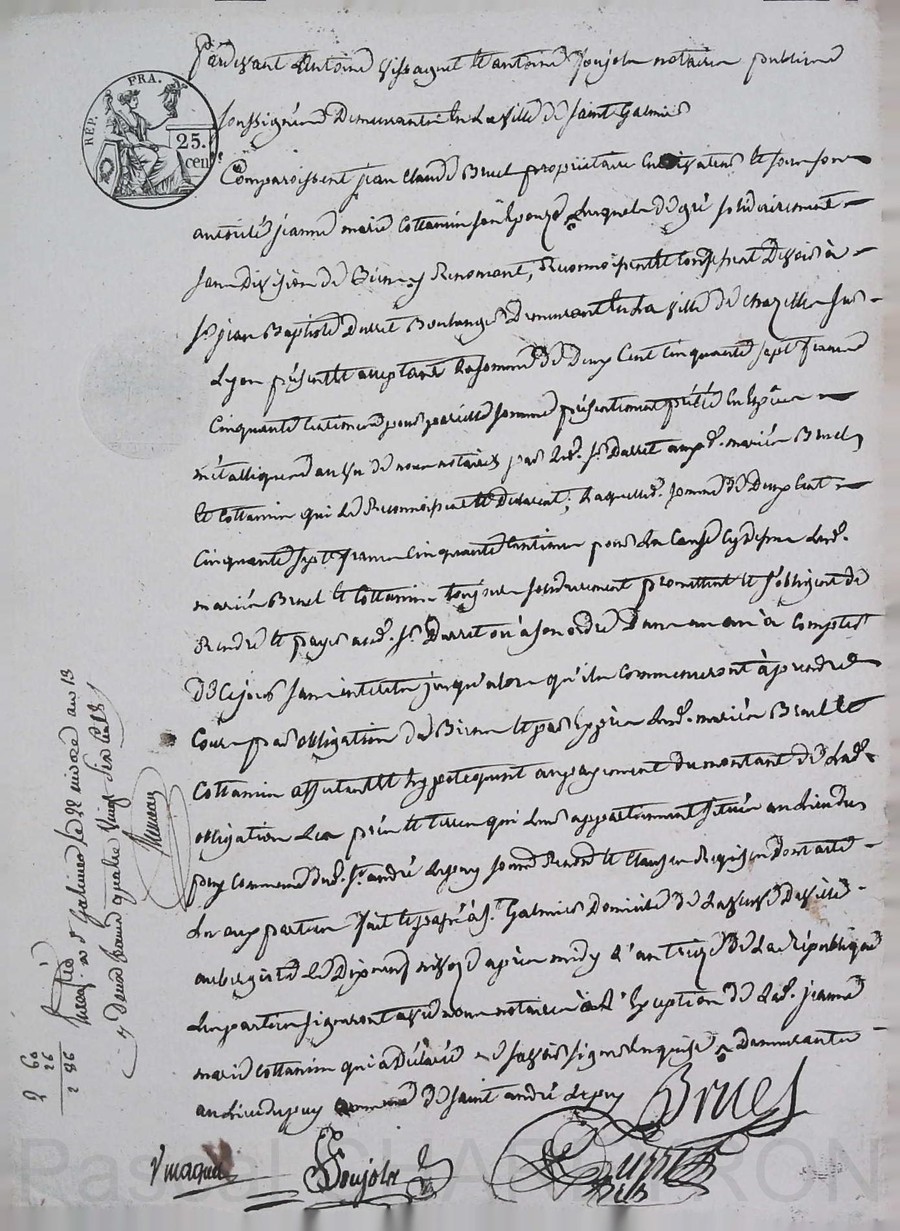 Pardevant Antoine Vissaguet et antoine Poujola notaires publics
soussignés Demeurants En La Ville de Saint Galmier
REP. FRA.
25. cen.
Comparoissent jean Claude Bruel propriétaire Cultivateur et sous son
autorité jeanne marie Cottancin son Epouze, lesquels de gré solidairement
sans Division de Biens y Renonçant, Reconnoissent et Confessent Devoir à
Sr. jean Baptiste Durret Boulanger Demeurant En La ville de chazelle sur
Lyon présent et acceptant La somme de Deux Cent Cinquante sept francs
Cinquante Centimes pour pareille somme présentement prêtée En Espèces
métalliques au vu de nous notaires par Led. Sr. Durret aux d. mariés Bruel
et Cottancin qui Le Reconnoissent et Declarent; Laquelle d. somme de Deux Cent
Cinquante sept francs Cinquante Centimes pour La Cause Cy dessus Lesd.
mariés Bruel et Cottancin toujours solidairement promettent et s'obligent de
Rendre et payer aud. Sr. Durret ou à son ordre Dans un an à Compter
De Ce jour sans intérêts jusqu'alors qu'ils Commenceront à prendre
Cours par obligation de Biens et par Exprès Lesd. mariés Bruel et
Cottancin affectent et hypotequent au payement du montant de Lad.
obligation Les prés et terres qui Leurs appartiennent situés au Lieu du
puy Commune dud. St. andré Lepuy soumis Renoncé et Clauses Requises Dont acte
Lu aux parties fait et passé à St. Galmier Domicile de
aubergiste Le Dix neuf nivose après midy L'an treize de La République
Les parties signeront avec nous notaires à L'Exception de Lad. jeanne
marie Cottancin qui a Déclaré ne savoir signer Enquise Demeurants
au Lieu du puy Commune de Saint andré Lepuy
Bruel
Vissaguet Poujola Durret
Enregistré à St. Galmier le 22 nivose an 13
Reçu Deux francs quatre Vingt six cent.
2 60
26
2 86
Rascal CHAMBRON